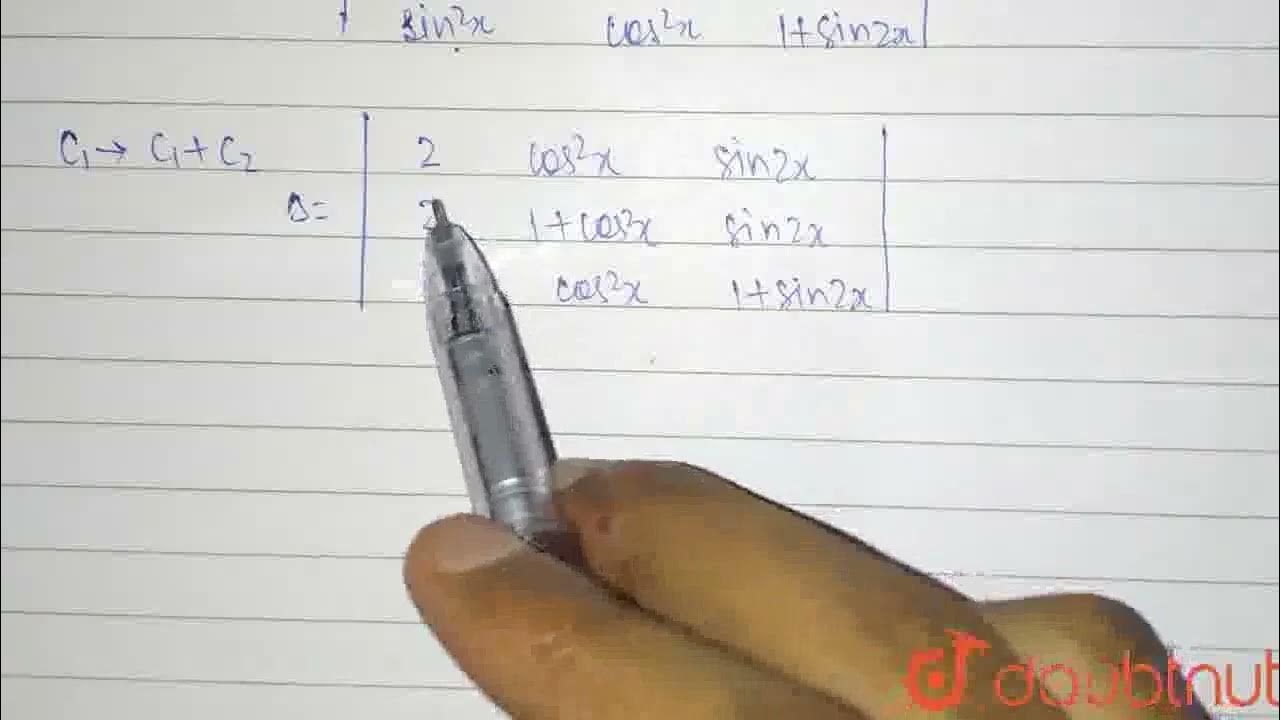 sin²x cos²x 1+sin2x
C₁→ C₁+C₂ 2 cos²x sin2x
Δ= 2 1+cos²x sin2x
cos²x 1+sin2x
doubtnut